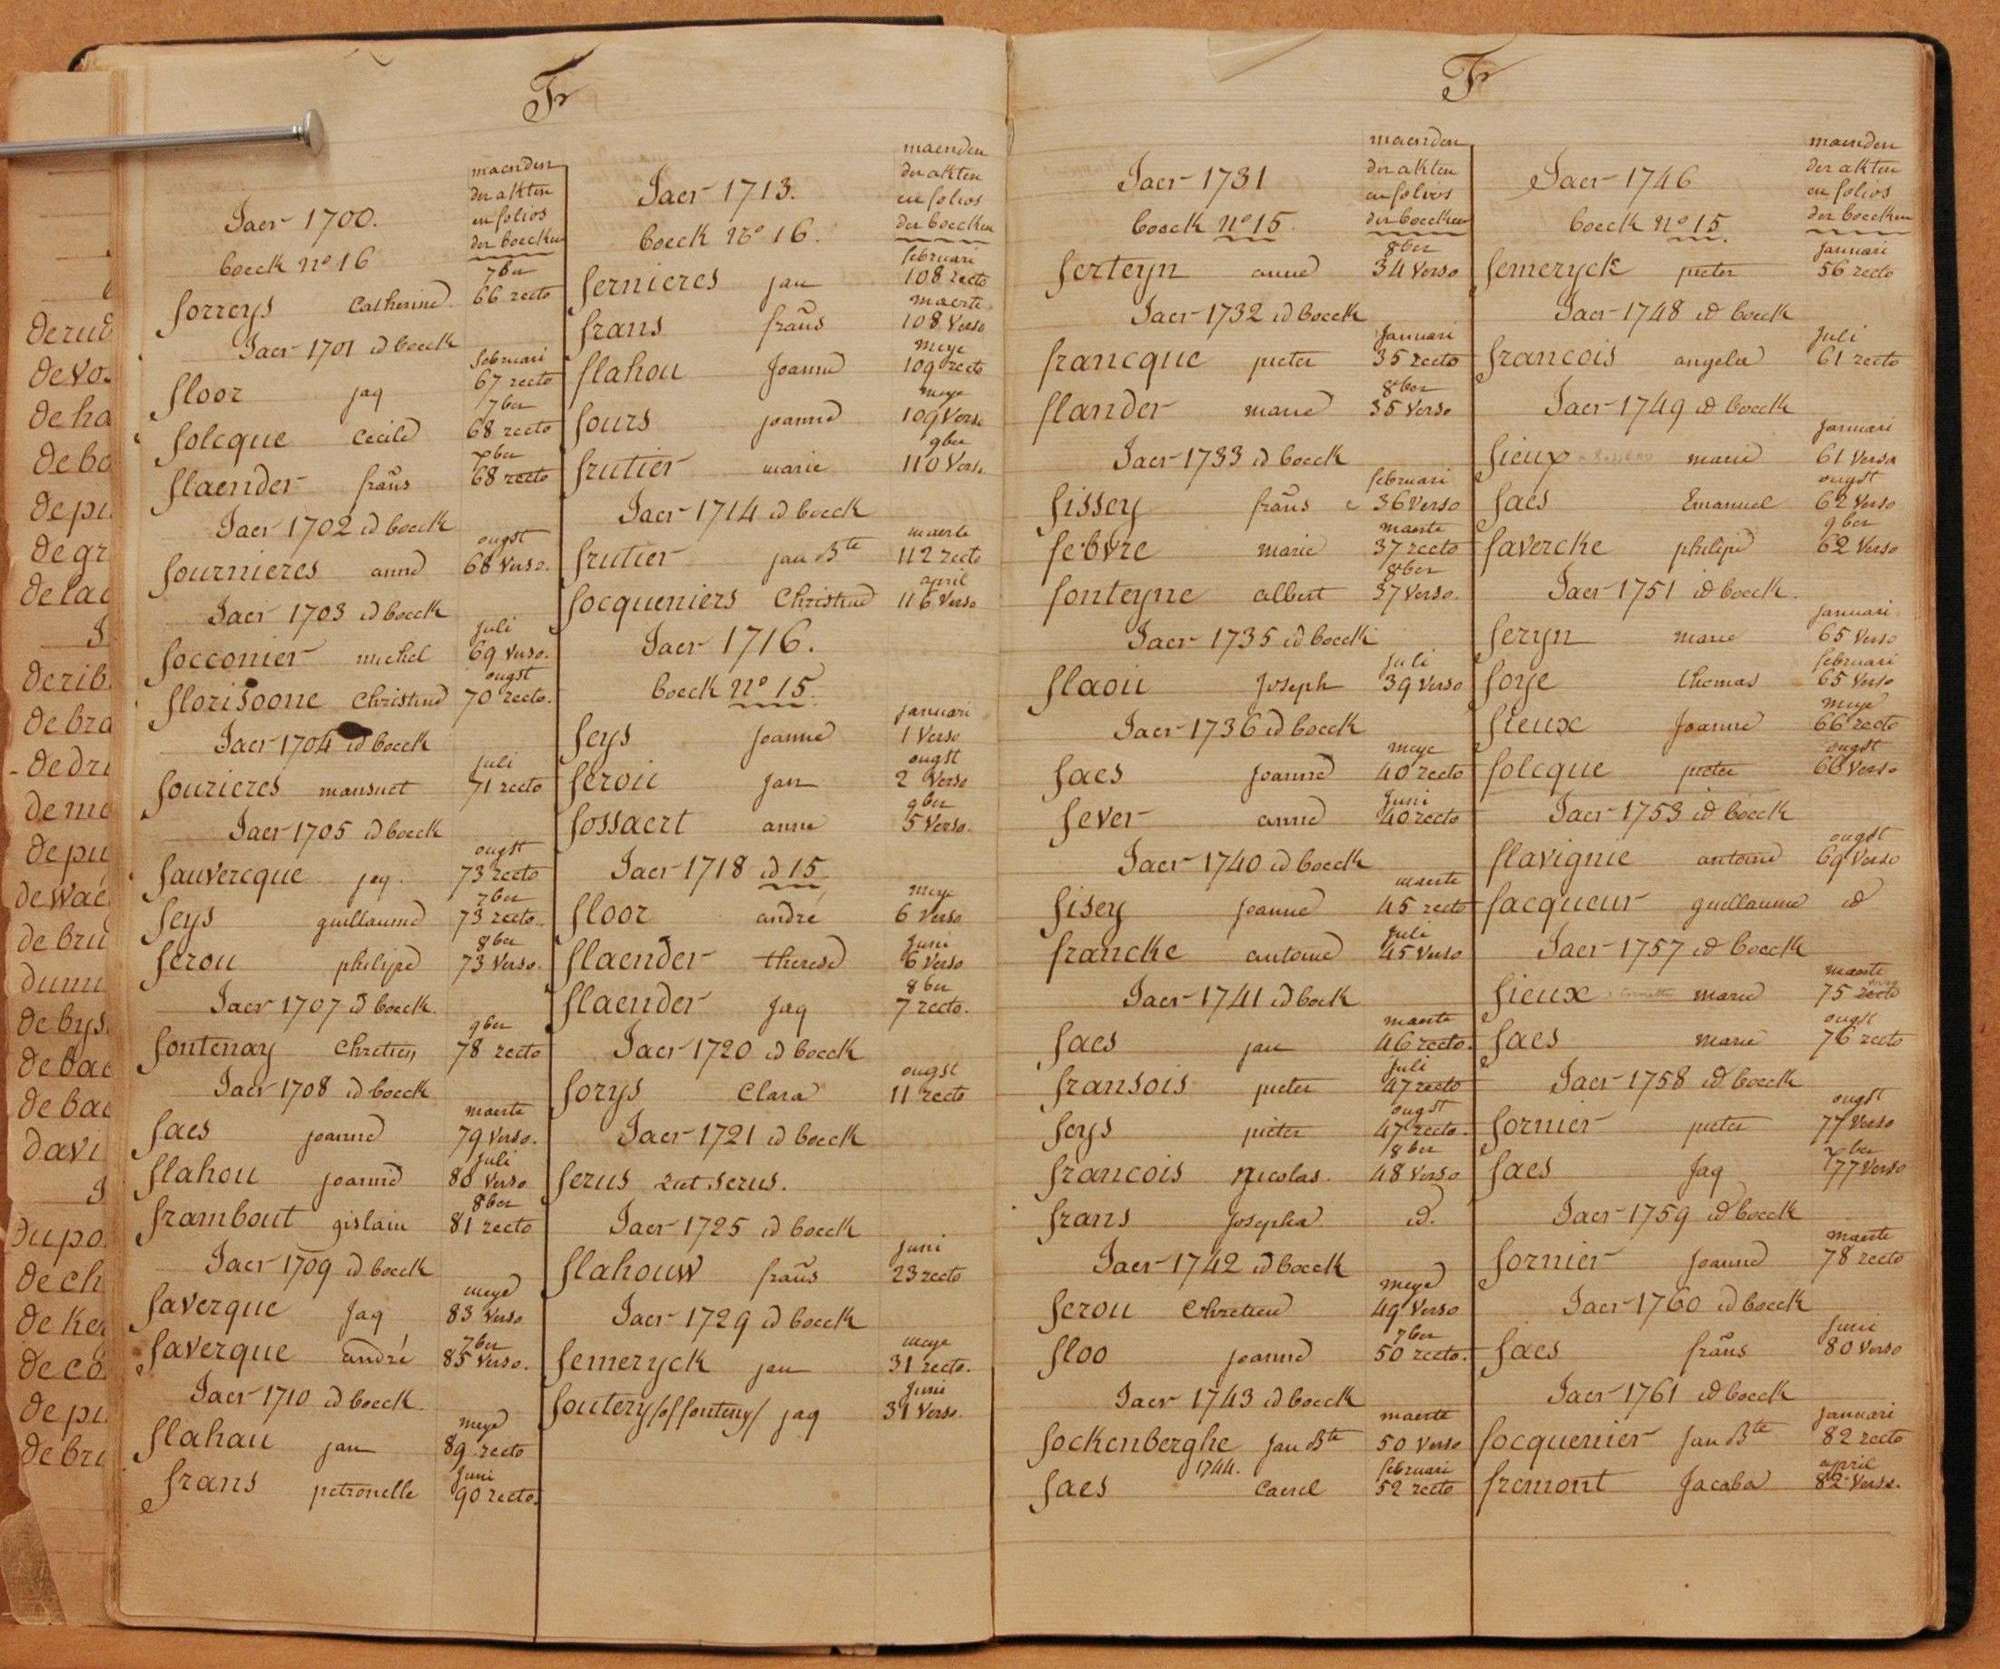 F
maenden
der akten
en folios
der boecken
Jaer 1700.
boeck no 16
7ber
forreys Catherine 66 recto
Jaer 1701 id boeck
februari
floor jaq 67 recto
7ber
folcque Cecile 68 recto
flaender frans 68 recto
Jaer 1702 id boeck
ougst
fournieres anne 68 Verso.
Jaer 1703 id boeck
juli
focconier michel 69 Verso.
ougst
florisoone Christine 70 recto.
Jaer 1704 id boeck
juli
fourieres mansuet 71 recto
Jaer 1705 id boeck
ougst
fauvercque jaq. 73 recto
7ber
feys guillaume 73 recto.
8ber
ferou philipe 73 Verso.
Jaer 1707 id boeck.
9ber
fontenay Chretien 78 recto
Jaer 1708 id boeck
maerte
faes joanne 79 Verso.
juli
flahou joanne 80 Verso
8ber
frambout gislain 81 recto
Jaer 1709 id boeck
meye
faverque Jaq 83 Verso
7ber
faverque andré 85 Verso.
Jaer 1710 id boeck.
meye
flahau jan 89 recto
Juni
frans petronelle 90 recto.
maenden
der akten
en folios
der boecken
Jaer 1713.
boeck No 16.
februari
fernieres jan 108 recto
maerte
frans frans 108 Verso
meye
flahou Joanne 109 recto
meye
fours joanne 109 Verso
9ber
frutier marie 110 Verso
Jaer 1714 id boeck
maerte
frutier jan Bte 112 recto
april
focqueniers Christine 116 Verso
Jaer 1716.
boeck No 15.
januari
feys joanne 1 Verso
ougst
ferou jan 2 Verso
9ber
fossaert anne 5 Verso.
Jaer 1718 id 15
meye
floor andré 6 Verso
Juni
flaender therese 6 Verso
8ber
flaender Jaq 7 recto.
Jaer 1720 id boeck
ougst
forys Clara 11 recto
Jaer 1721 id boeck
ferus
Jaer 1725 id boeck
juni
flahouw frans 23 recto
Jaer 1729 id boeck
meye
femeryck jan 31 recto.
Junii
foutery/of fonteny/ jaq 31 Verso.
F
maenden
der akten
en folios
der boecken
Jaer 1731
boeck No 15.
8ber
ferteyn anne 34 Verso
Jaer 1732 id boeck
Januari
francque pieter 35 recto
8ber
flander marie 35 Verso
Jaer 1733 id boeck
februari
fissey frans 36 Verso
maerte
febvre marie 37 recto
8ber
fonteyne albert 37 Verso.
Jaer 1735 id boeck
juli
flaou Joseph 39 Verso
Jaer 1736 id boeck
meye
faes joanne 40 recto
Juni
fever anne 40 recto
Jaer 1740 id boeck
maerte
fisey joanne 45 recto
juli
francke antoine 45 Verso
Jaer 1741 id boek
maerte
faes jan 46 recto.
Juli
fransois pieter 47 recto
ougst
feys pieter 47 recto.
8ber
francois Nicolas. 48 Verso
frans Josepha id.
Jaer 1742 id boeck
meye
ferou Chretien 49 Verso
7ber
floo joanne 50 recto.
Jaer 1743 id boeck
maerte
fockenberghe Jan Bte 50 Verso
1744. februari
faes Caerel 52 recto
maenden
der akten
en folios
der boecken
Jaer 1746
boeck No 15.
januari
femeryck pieter 56 recto
Jaer 1748 id boeck
juli
francois angela 61 recto
Jaer 1749 id boeck
januari
fieux marie 61 Verso
ougst
faes Emanuel 62 Verso
9ber
favercke philipe 62 Verso
Jaer 1751 id boeck.
januari
feryn marie 65 Verso
februari
foye thomas 65 Verso
meye
fieux Joanne 66 recto
ougst
folcque pieter 66 Verso
Jaer 1753 id boeck
ougst
flavignie antoine 69 Verso
facqueur guellaume id
Jaer 1757 id boeck
maerte
fieux marie 75 recto
ougst
faes marie 76 recto
Jaer 1758 id boeck
ougst
fornier pieter 77 Verso
faes Jaq 77 Verso
Jaer 1759 id boeck
maerte
fornier Joanne 78 recto
Jaer 1760 id boeck
juni
faes frans 80 Verso
Jaer 1761 id boeck
januari
focquenier Jan Bte 82 recto
april
fremont Jacoba 82 Verso.